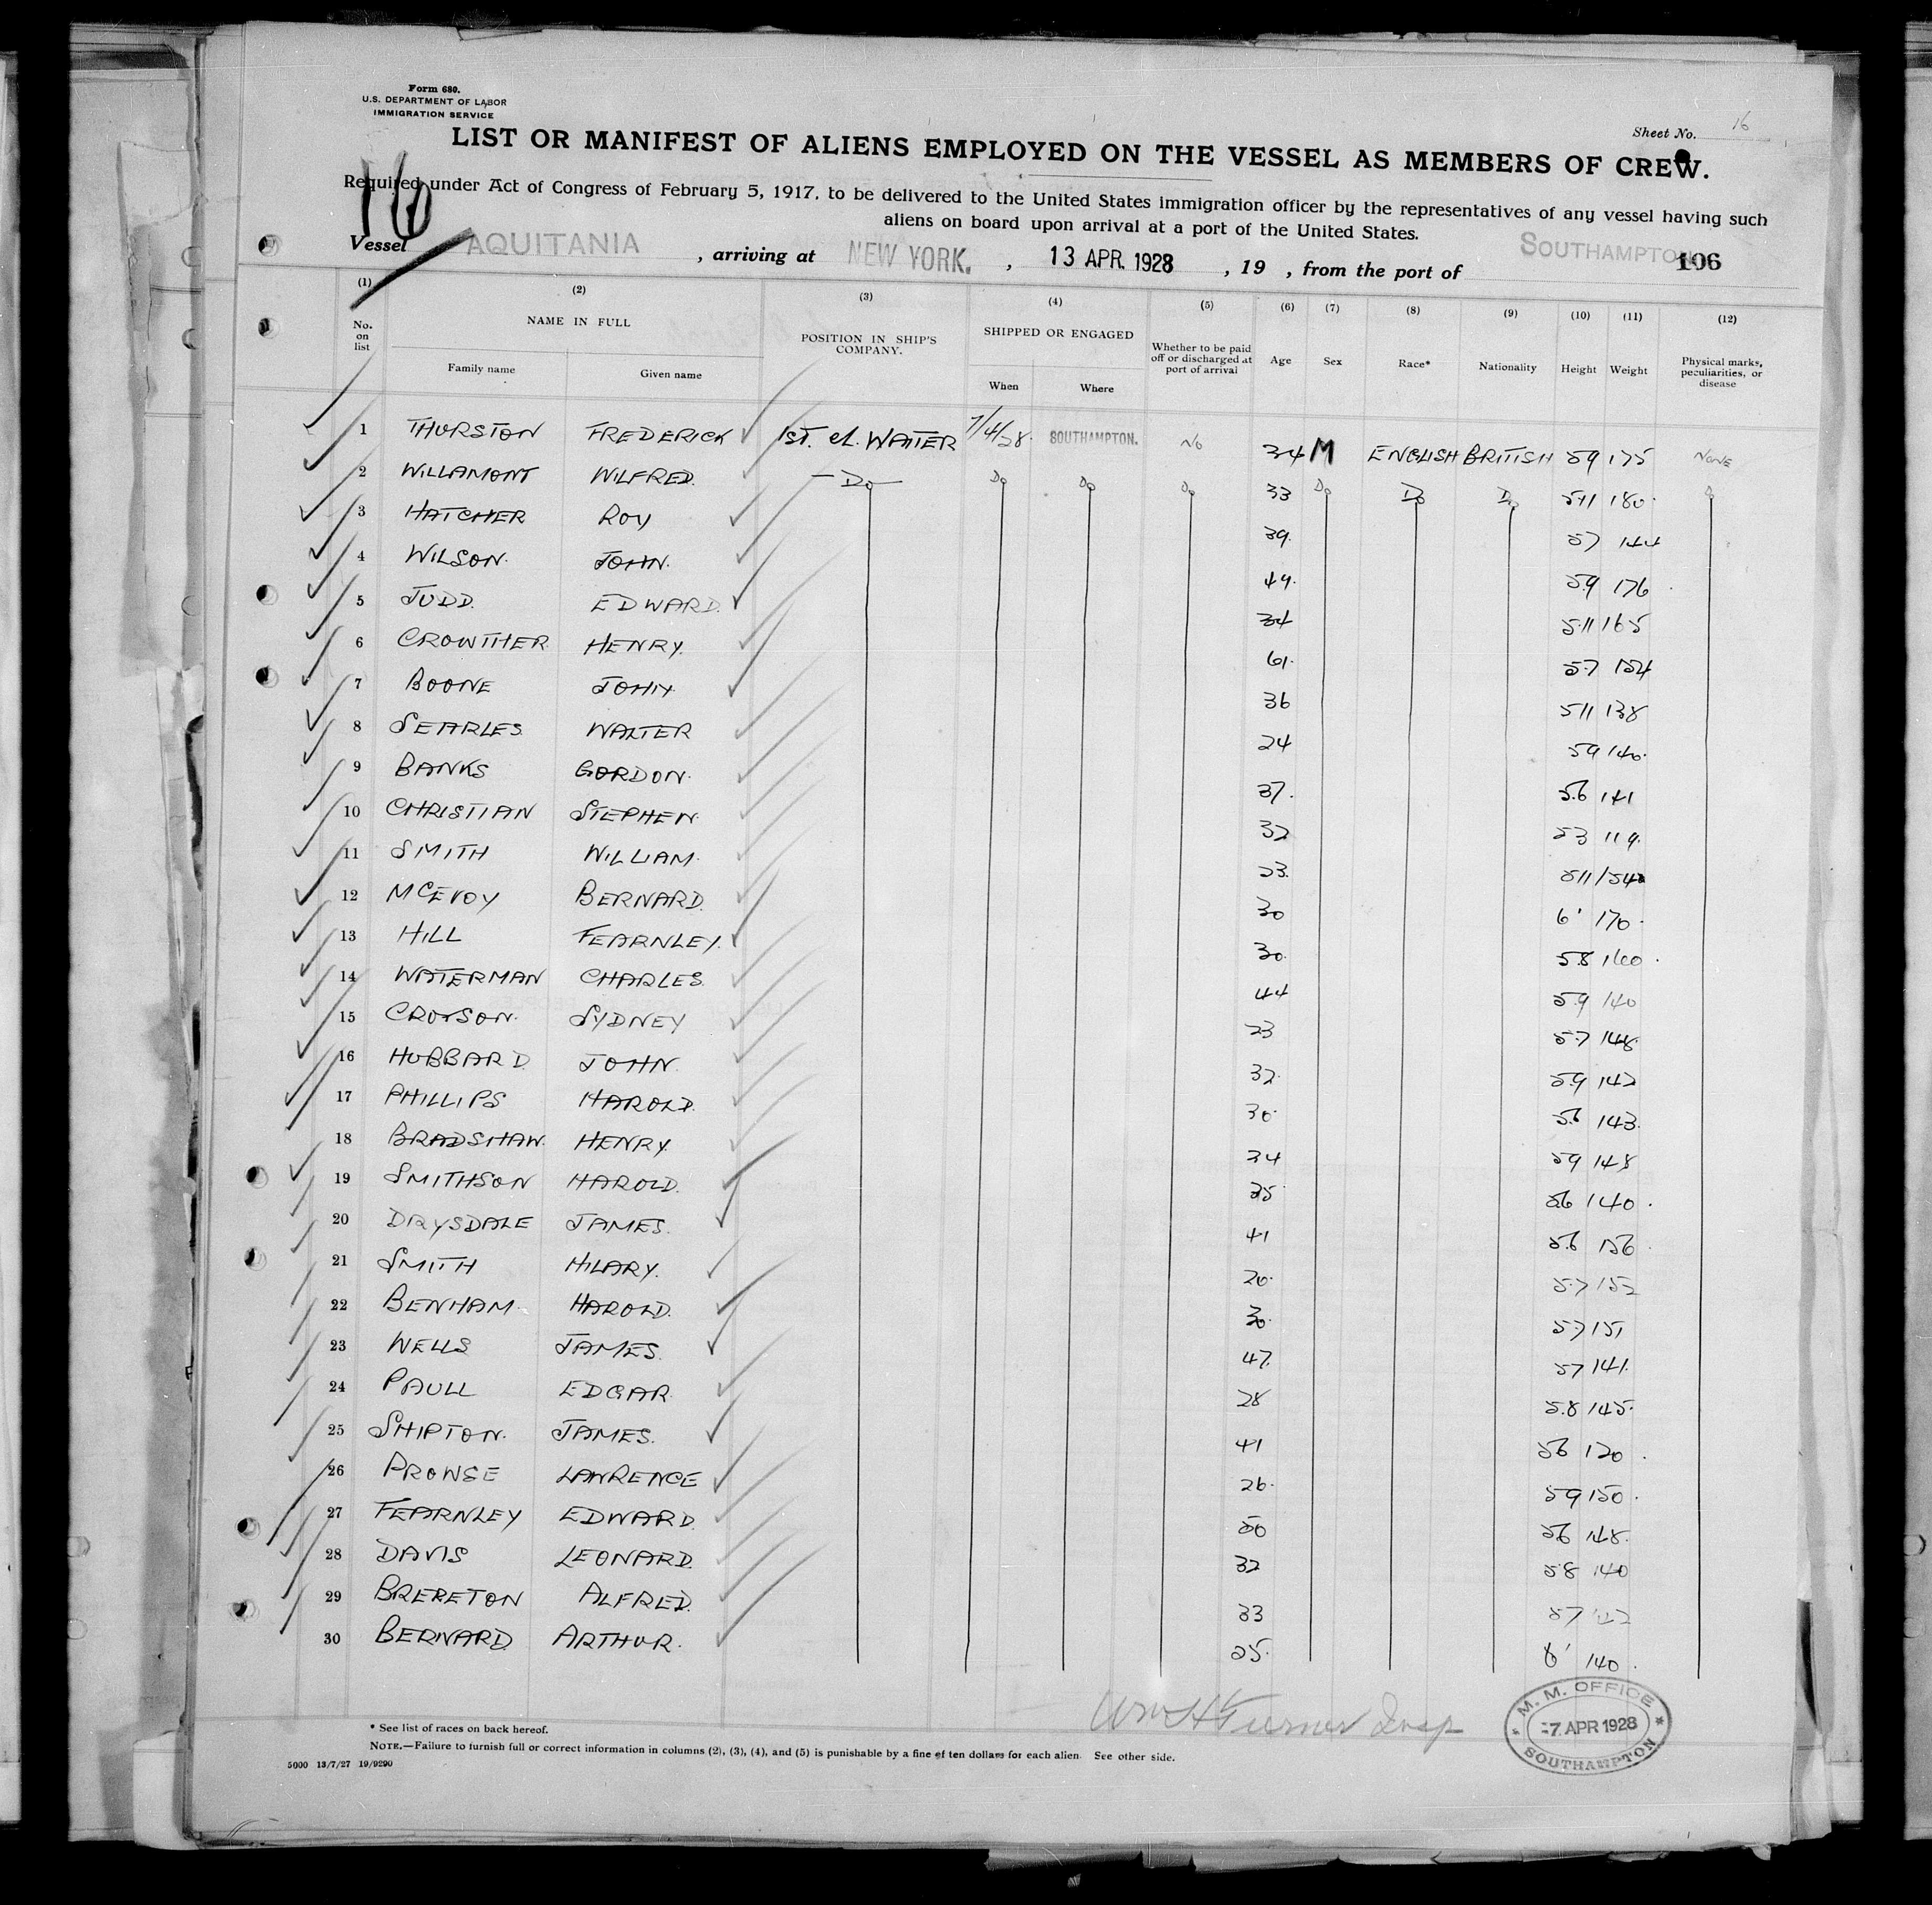 Form 680.
U.S. DEPARTMENT OF LABOR
IMMIGRATION SERVICE
Sheet No. 16
LIST OR MANIFEST OF ALIENS EMPLOYED ON THE VESSEL AS MEMBERS OF CREW.
16
Required under Act of Congress of February 5, 1917, to be delivered to the United States immigration officer by the representatives of any vessel having such
aliens on board upon arrival at a port of the United States.
Vessel AQUITANIA, arriving at NEW YORK., 13 APR. 1928, 19 , from the port of SOUTHAMPTON 106
(1) (2) (3) (4) (5) (6) (7) (8) (9) (10) (11) (12)
No. on list NAME IN FULL Family name Given name POSITION IN SHIP'S COMPANY. SHIPPED OR ENGAGED When Where Whether to be paid off or discharged at port of arrival Age Sex Race* Nationality Height Weight Physical marks, peculiarities, or disease
1 THURSTON FREDERICK 1ST. cl. WAITER 7/4/28 SOUTHAMPTON. No 34 M ENGLISH BRITISH 59 175 NONE
2 WILLAMONT WILFRED. Do Do Do Do 33 Do Do Do 5-11 180.
3 HATCHER ROY 39. 57 144
4 WILSON. JOHN. 49. 5.9 176
5 JUDD. EDWARD. 34 5.11 165
6 CROWTHER HENRY. 61. 5.7 154
7 BOONE JOHN 36 511 138
8 SEARLES WALTER 24 59 140.
9 BANKS GORDON. 37. 5.6 141
10 CHRISTIAN STEPHEN. 32 53 119.
11 SMITH WILLIAM. 23. 511 154
12 MCEVOY BERNARD. 30 6' 170.
13 HILL FEARNLEY. 30. 58 160.
14 WATERMAN CHARLES. 44 5.9 140
15 CROSSON. SYDNEY 23 5.7 148.
16 HUBBARD JOHN. 32. 5.9 142
17 PHILLIPS HAROLD. 30. 5.6 143.
18 BRADSHAW. HENRY. 34 59 148
19 SMITHSON HAROLD. 35 56 140.
20 DRYSDALE JAMES. 41 5.6 156
21 SMITH HILARY. 20. 5.7 152
22 BENHAM. HAROLD. 30. 57 151
23 WELLS JAMES. 47. 57 141.
24 PAULL EDGAR. 28 5.8 145.
25 SHIPTON. JAMES. 41 56 120.
26 PROWSE LAWRENCE 26. 59 150.
27 FEARNLEY EDWARD. 50 56 148.
28 DAVIS LEONARD. 32 5.8 140
29 BRERETON ALFRED. 33 57
30 BERNARD. ARTHUR. 25. 140.
Wm H Turner Insp
M. M. OFFICE
-7 APR 1928
SOUTHAMPTON
* See list of races on back hereof.
NOTE.—Failure to furnish full or correct information in columns (2), (3), (4), and (5) is punishable by a fine of ten dollars for each alien. See other side.
5000 13/7/27 19/9290